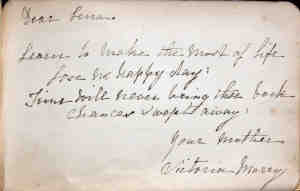 Dear Lena
Learn to make the most of life
Lose no happy day:
Time will never bring thee back
Chances swept away:
Your mother
Victoria